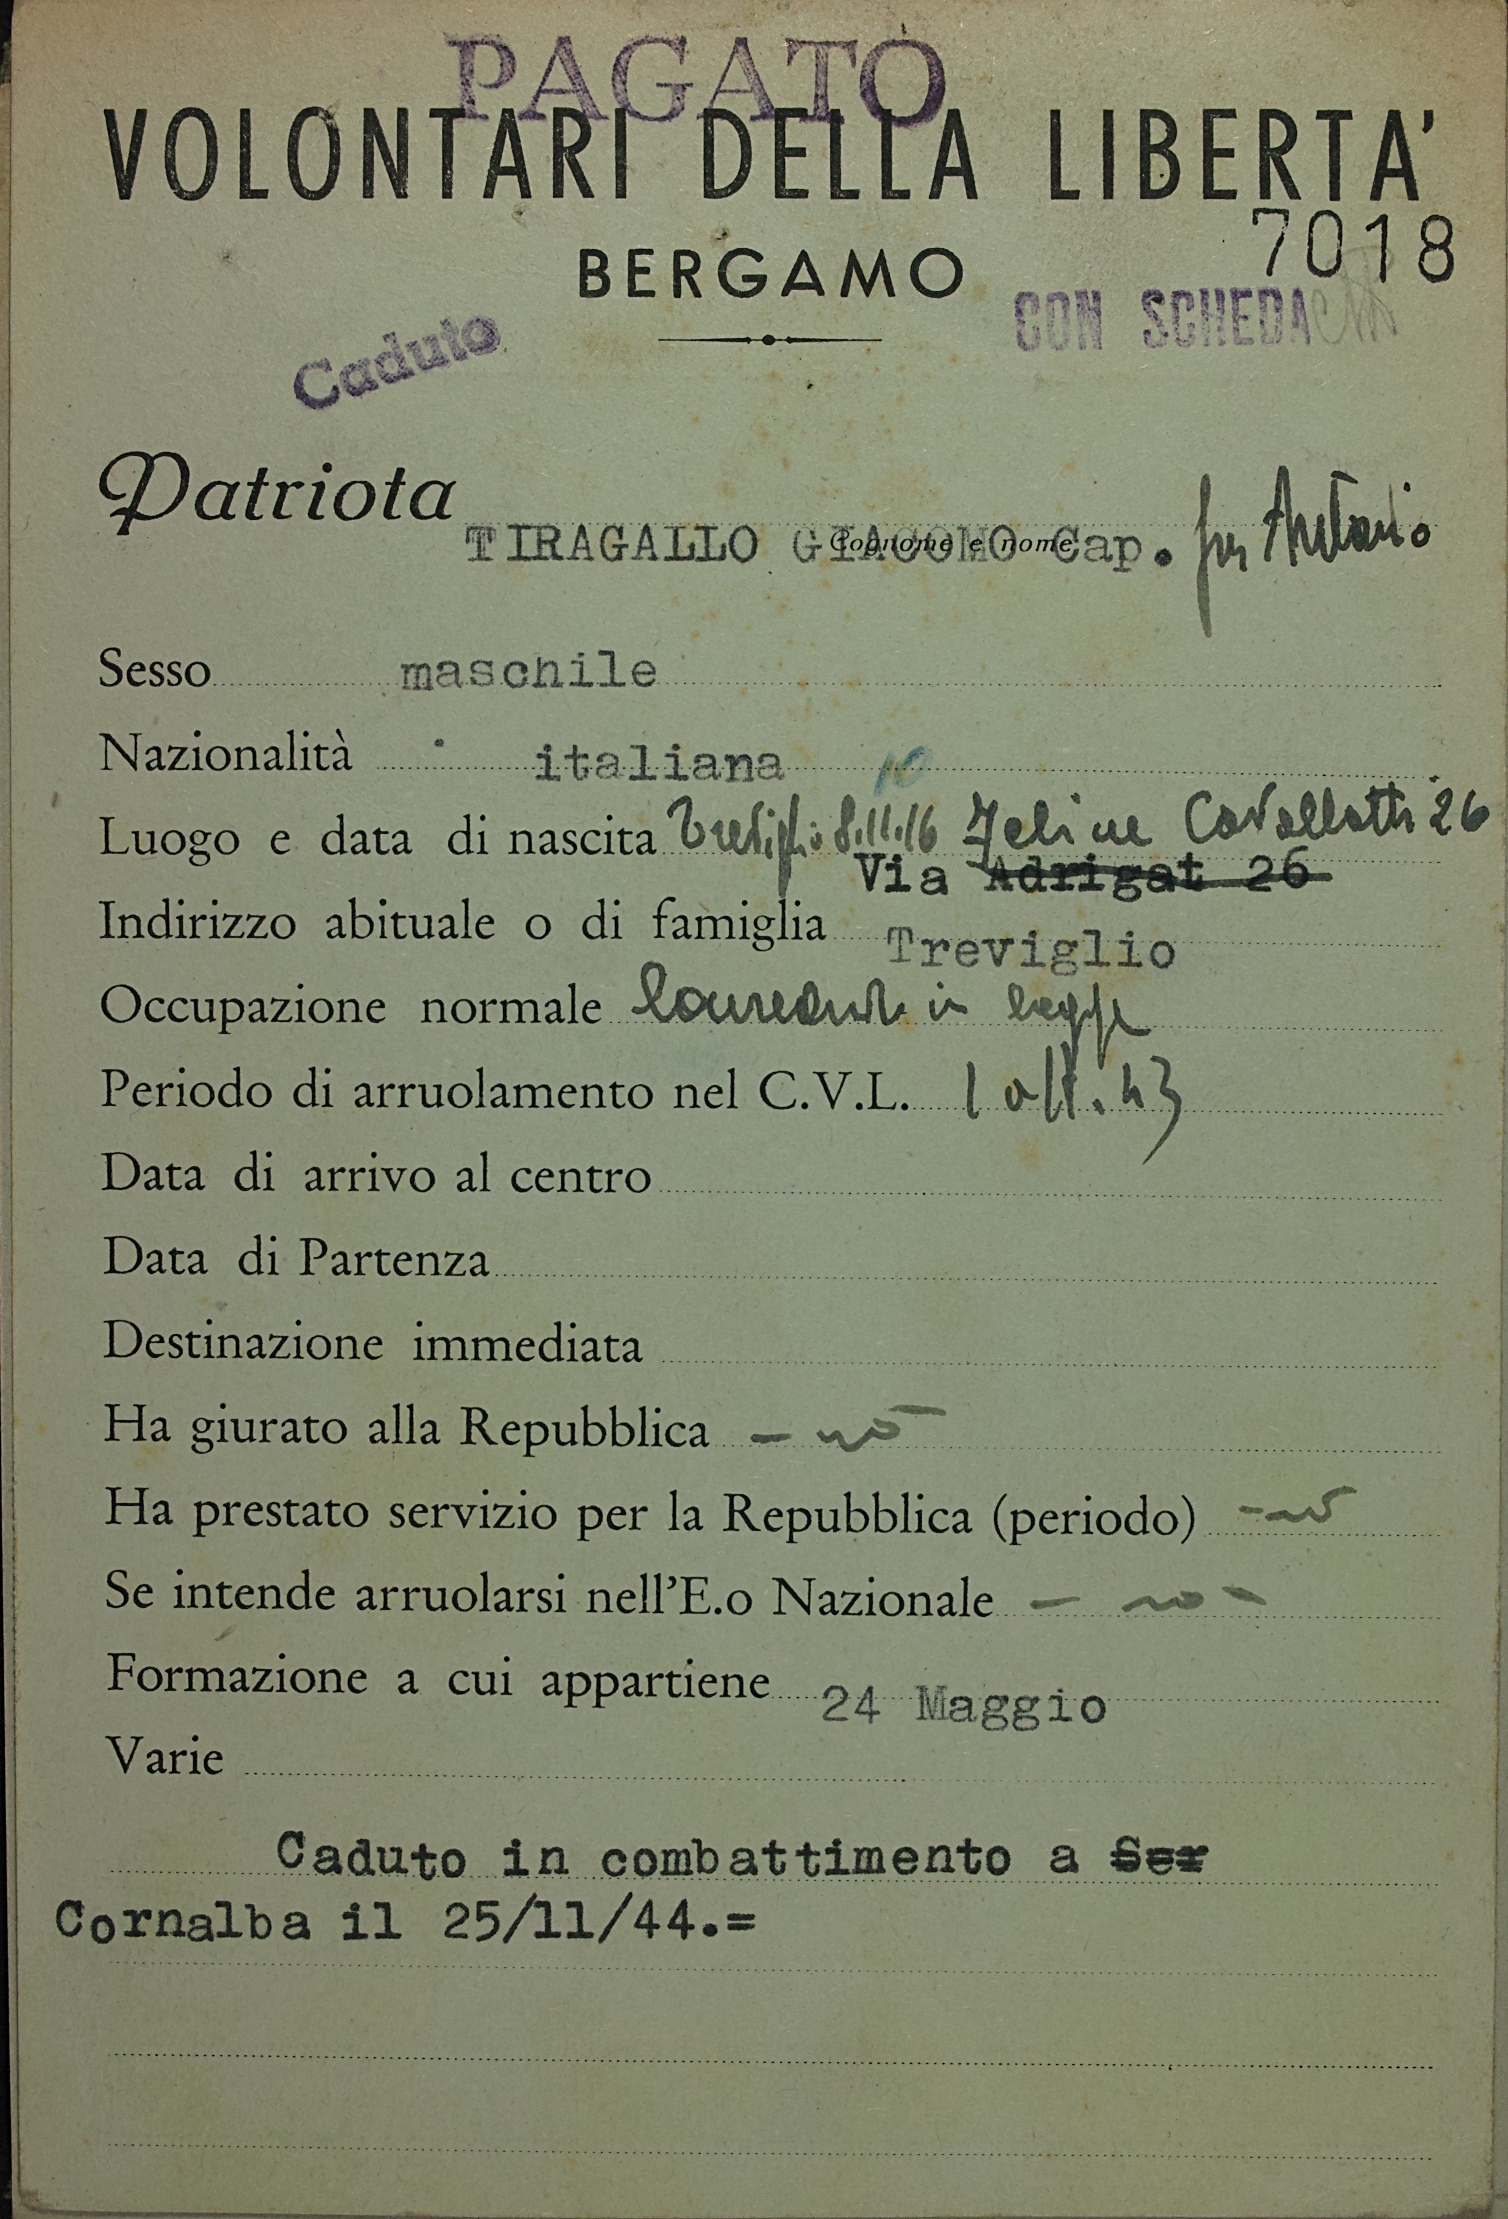 PAGATO
VOLONTARI DELLA LIBERTA'
7018
BERGAMO
CON SCHEDA
Caduto
Patriota TIRAGALLO GIACOMO Cap. fu Antonio
Cognome e nome
Sesso maschile
Nazionalità italiana 10
Luogo e data di nascita Treviglio 8.11.16 Felice Cavallotti 26
Via Adrigat 26
Indirizzo abituale o di famiglia Treviglio
Occupazione normale laureando in legge
Periodo di arruolamento nel C.V.L. 1 ott. 43
Data di arrivo al centro
Data di Partenza
Destinazione immediata
Ha giurato alla Repubblica - no -
Ha prestato servizio per la Repubblica (periodo) - no
Se intende arruolarsi nell'E.o Nazionale - no -
Formazione a cui appartiene 24 Maggio
Varie
Caduto in combattimento a Ser
Cornalba il 25/11/44.=